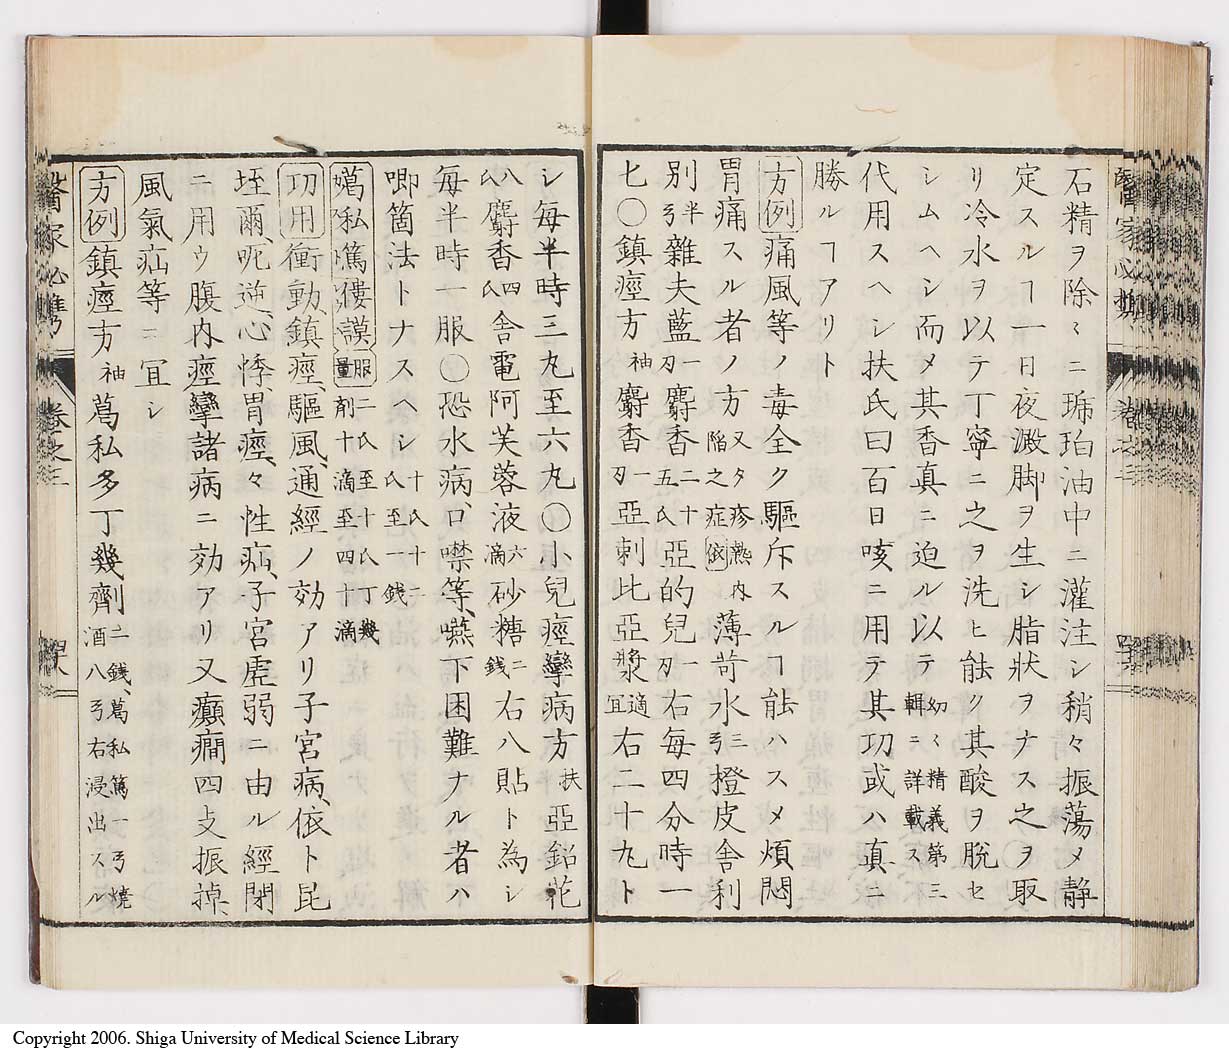 石精ヲ除々ニ琥珀油中ニ灌注シ稍々振蕩メ静
定スルヿ一日夜澱脚ヲ生シ脂状ヲナス之ヲ取
リ冷水ヲ以テ丁寧ニ之ヲ洗ヒ能ク其酸ヲ脱セ
シムヘシ而メ其香真ニ迫ル以テ幼々精義第三輯ニ詳載ス
代用スヘシ扶氏曰百日咳ニ用テ其功或ハ真ニ
勝ルヿアリト
方例痛風等ノ毒全ク驅斥スルヿ能ハスメ煩悶
胃痛スル者ノ方又タ疹熱内陥之症依薄苛水三弓橙皮舎利
別半弓雜夫藍一刄麝香二十五氏亞的兒一刄右毎四分時一
匕〇鎮痙方袖麝香一刄亞刺比亞漿適宜右二十九ト
シ毎半時三丸至六丸〇小兒痙攣病方扶亞鉛花
八氏麝香四氏舎電阿芙蓉液六滴砂糖二銭右八貼ト為シ
毎半時一服〇恐水病口噤等嚥下困難ナル者ハ
喞筒法トナスヘシ十氏十二氏至一銭
服量二氏至十氏丁幾剤十滴至四十滴
功用衝動鎮痙、驅風、通經ノ効アリ子宮病、依卜昆
垤爾、呃逆、心悸胃痙、々性疝、子宮虚弱ニ由ル經閉
ニ用ウ腹内痙攣諸病ニ効アリ又癲癇四支振掉、
風氣疝等ニ宜シ
方例鎮痙方袖葛私多丁幾劑二銭、葛私篤一弓焼酒八弓右浸出スル
巻之三
Copyright 2006. Shiga University of Medical Science Library